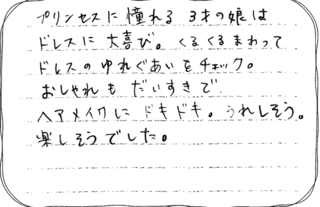 プリンセスに憧れる 3才の娘は
ドレスに大喜び。くるくるまわって
ドレスのゆれぐあいをチェック。
おしゃれも だいすきで
ヘアメイクに ドキドキ。うれしそう。
楽しそうでした。